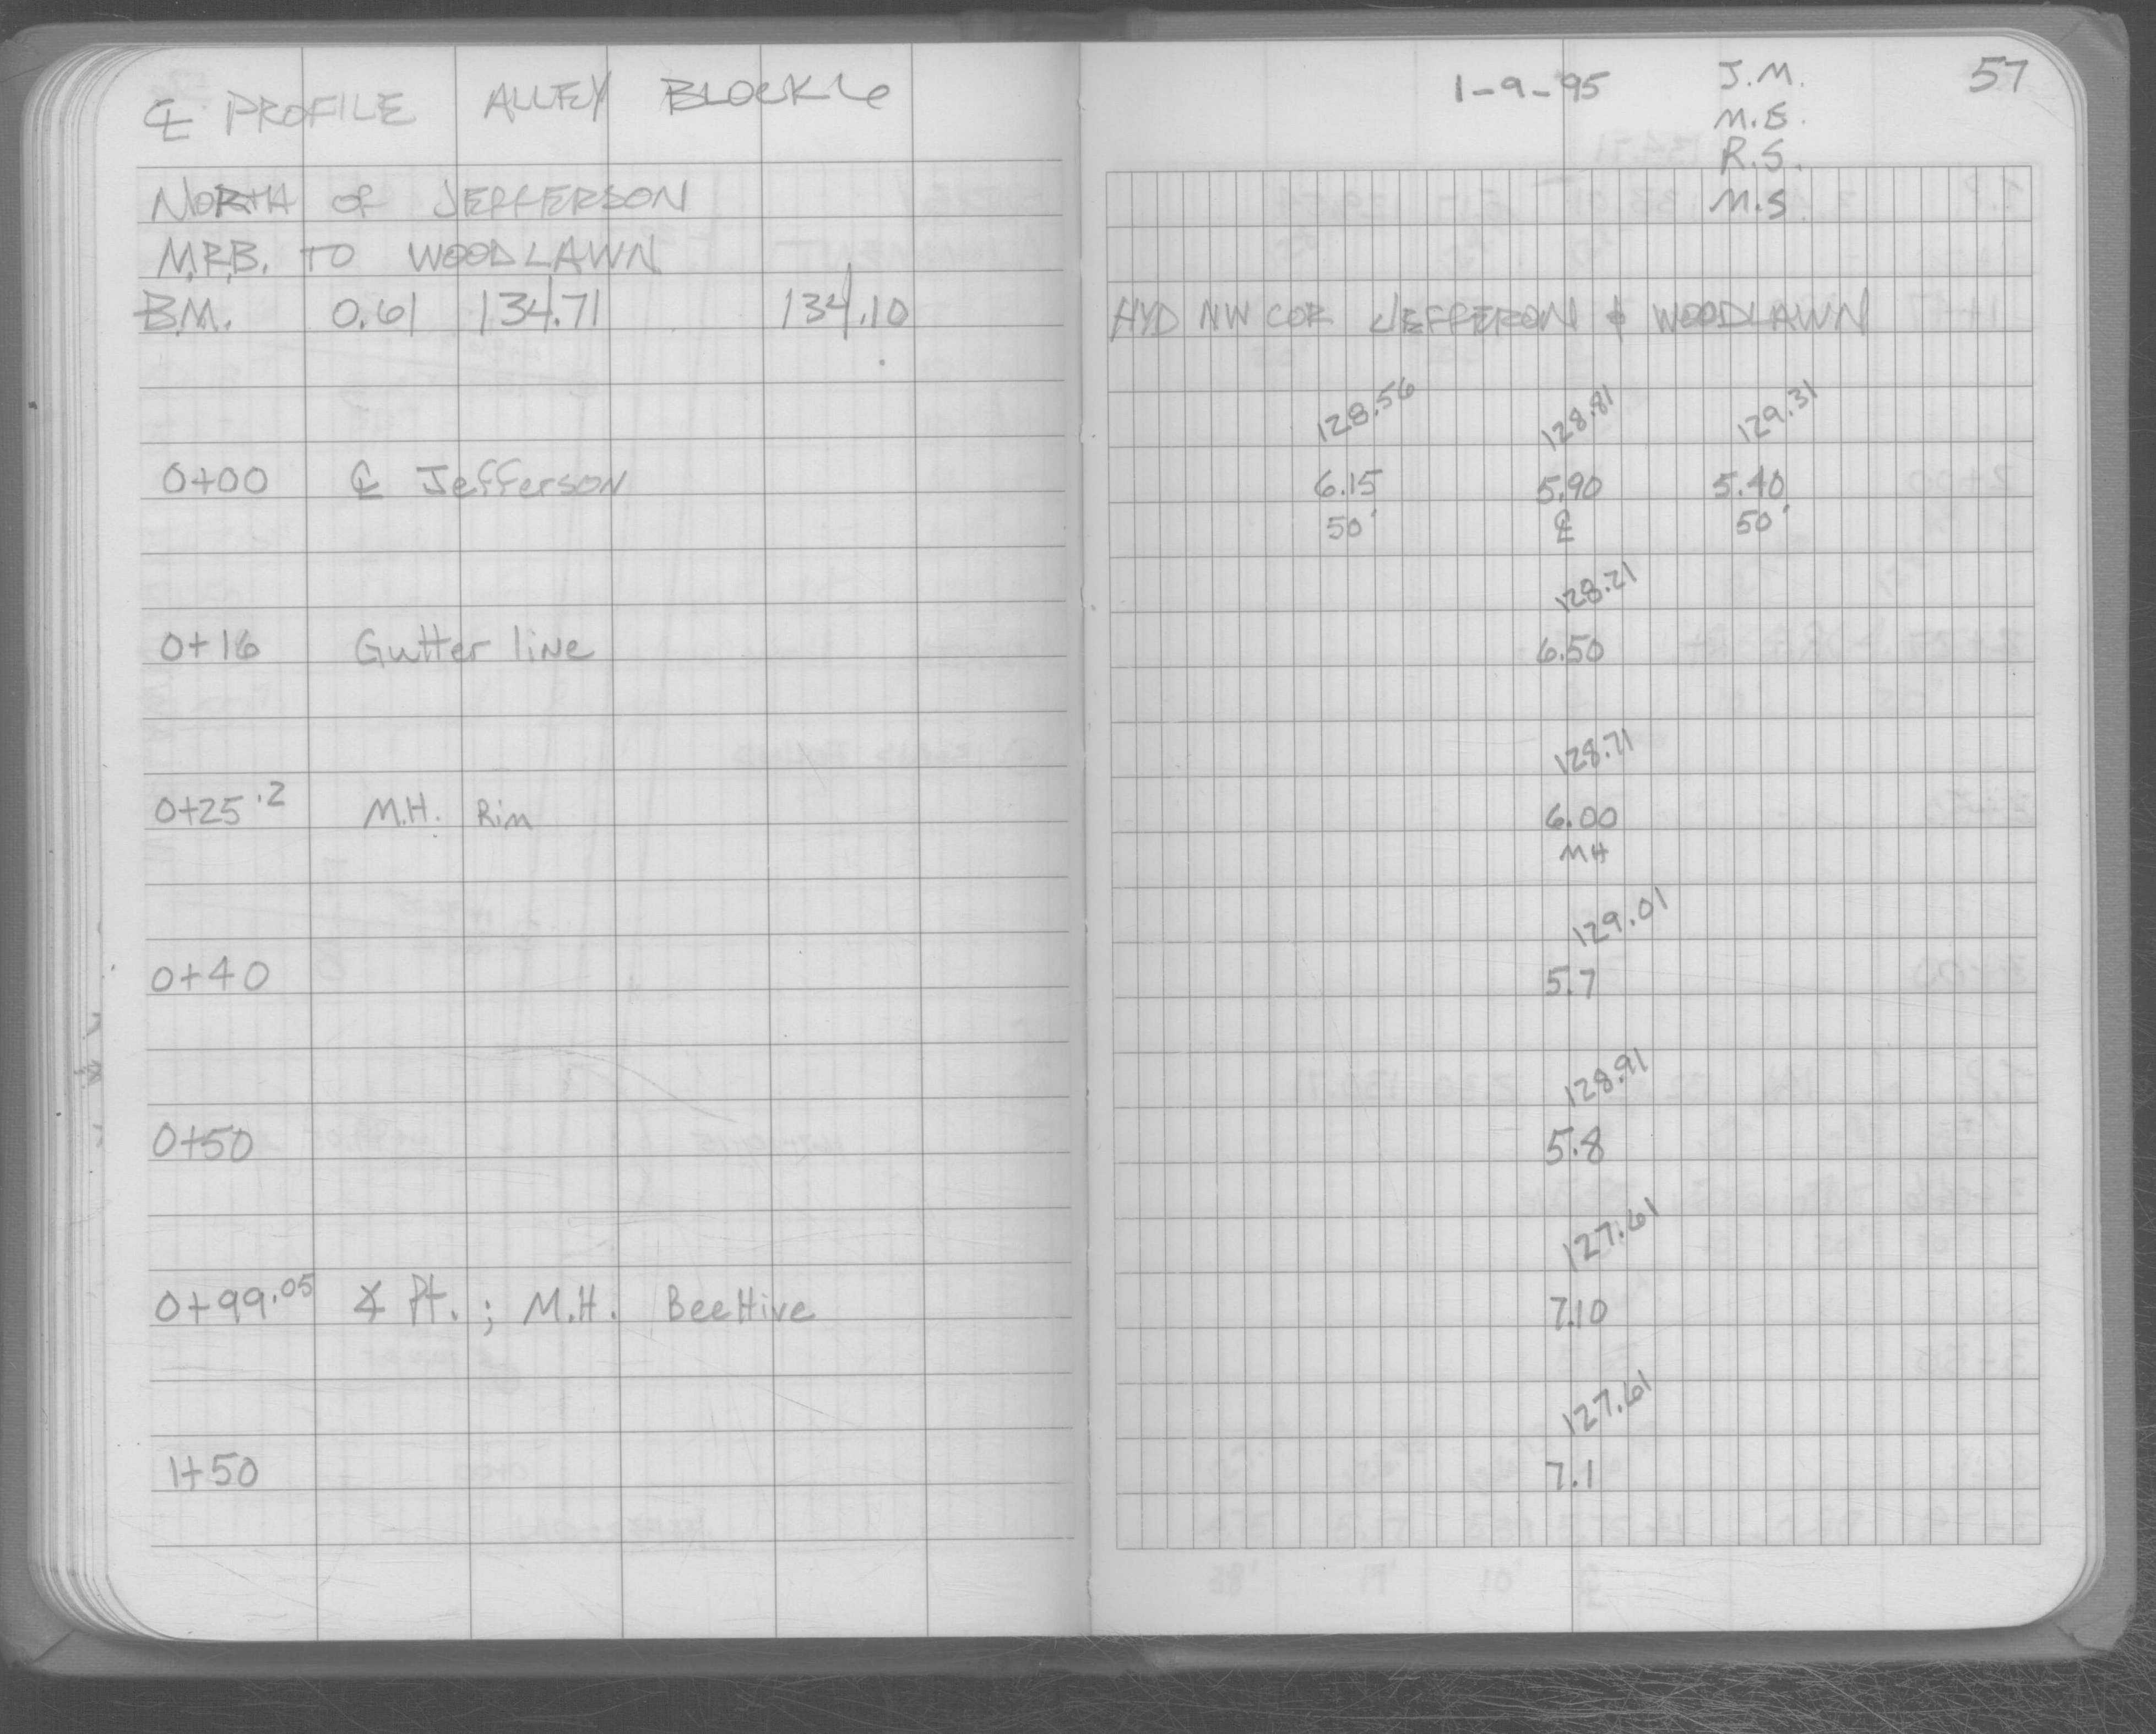 ℄ PROFILE ALLEY BLOCK 6
NORTH OF JEFFERSON
M.R.B. TO WOODLAWN
B.M. 0.61 134.71 134.10
0+00 ℄ Jefferson
0+16 Gutter line
0+25.2 M.H. Rim
0+40
0+50
0+99.05 ∡ Pt. ; M.H. BeeHive
1+50
1-9-95 J.M. 57
M.E.
R.S.
M.S
HYD NW COR JEFFERON & WOODLAWN
128.56 128.81 129.31
6.15 5.90 5.40
50' ℄ 50'
128.21
6.50
128.71
6.00
MH
129.01
5.7
128.91
5.8
127.61
7.10
127.61
7.1